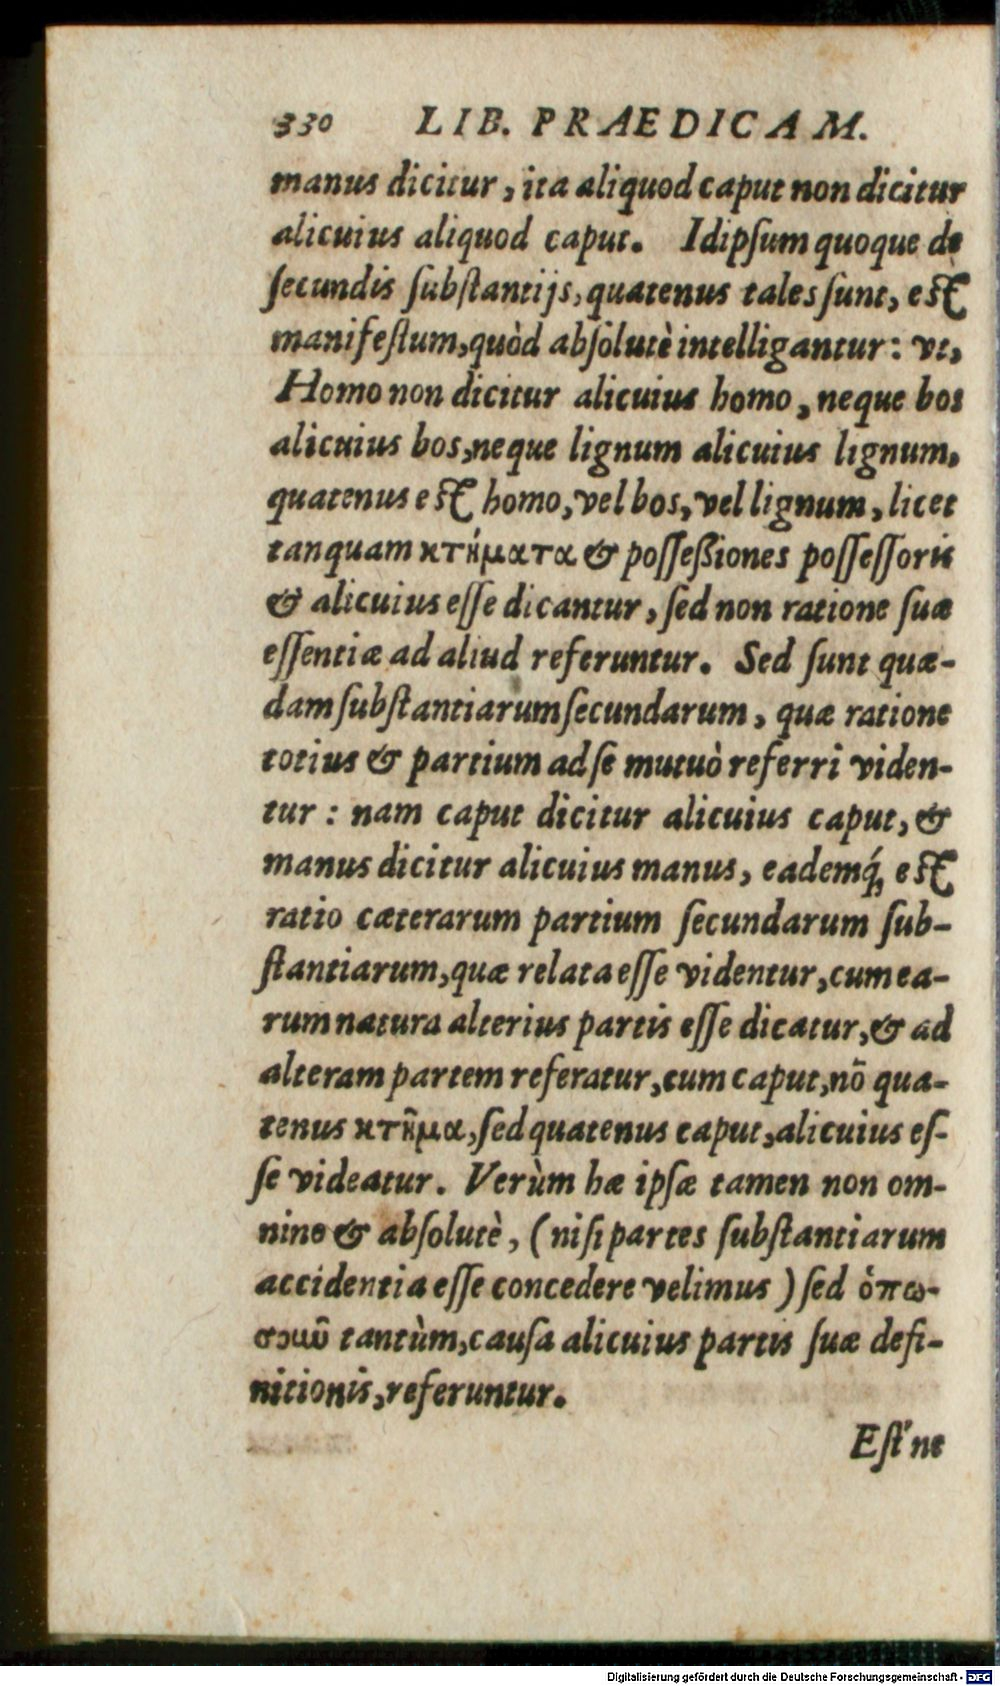 330 LIB. PRAEDICAM.
manus dicitur, ita aliquod caput non dicitur
alicuius aliquod caput. Idipſum quoque de
ſecundis ſubſtantijs, quatenus tales ſunt, eſt
manifeſtum, quòd abſolutè intelligantur: vt,
Homo non dicitur alicuius homo, neque bos
alicuius bos, neque lignum alicuius lignum,
quatenus eſt homo, vel bos, vel lignum, licet
tanquam κτήματα & poſſeßiones poſſeſſoris
& alicuius eſſe dicantur, ſed non ratione ſuæ
eſſentiæ ad aliud referuntur. Sed ſunt quæ-
dam ſubſtantiarum ſecundarum, quæ ratione
totius & partium ad ſe mutuò referri viden-
tur: nam caput dicitur alicuius caput, &
manus dicitur alicuius manus, eademq́ꝫ eſt
ratio cæterarum partium ſecundarum ſub-
ſtantiarum, quæ relata eſſe videntur, cum ea-
rum natura alterius partis eſſe dicatur, & ad
alteram partem referatur, cum caput, nō qua-
tenus κτῆμα, ſed quatenus caput, alicuius eſ-
ſe videatur. Verùm hæ ipſæ tamen non om-
nino & abſolutè, (niſi partes ſubſtantiarum
accidentia eſſe concedere velimus) ſed ὁπω-
σοιωῦ tantùm, cauſa alicuius partis ſuæ defi-
nitionis, referuntur.
Eſt'ne
Digitalisierung gefördert durch die Deutsche Forschungsgemeinschaft - DFG